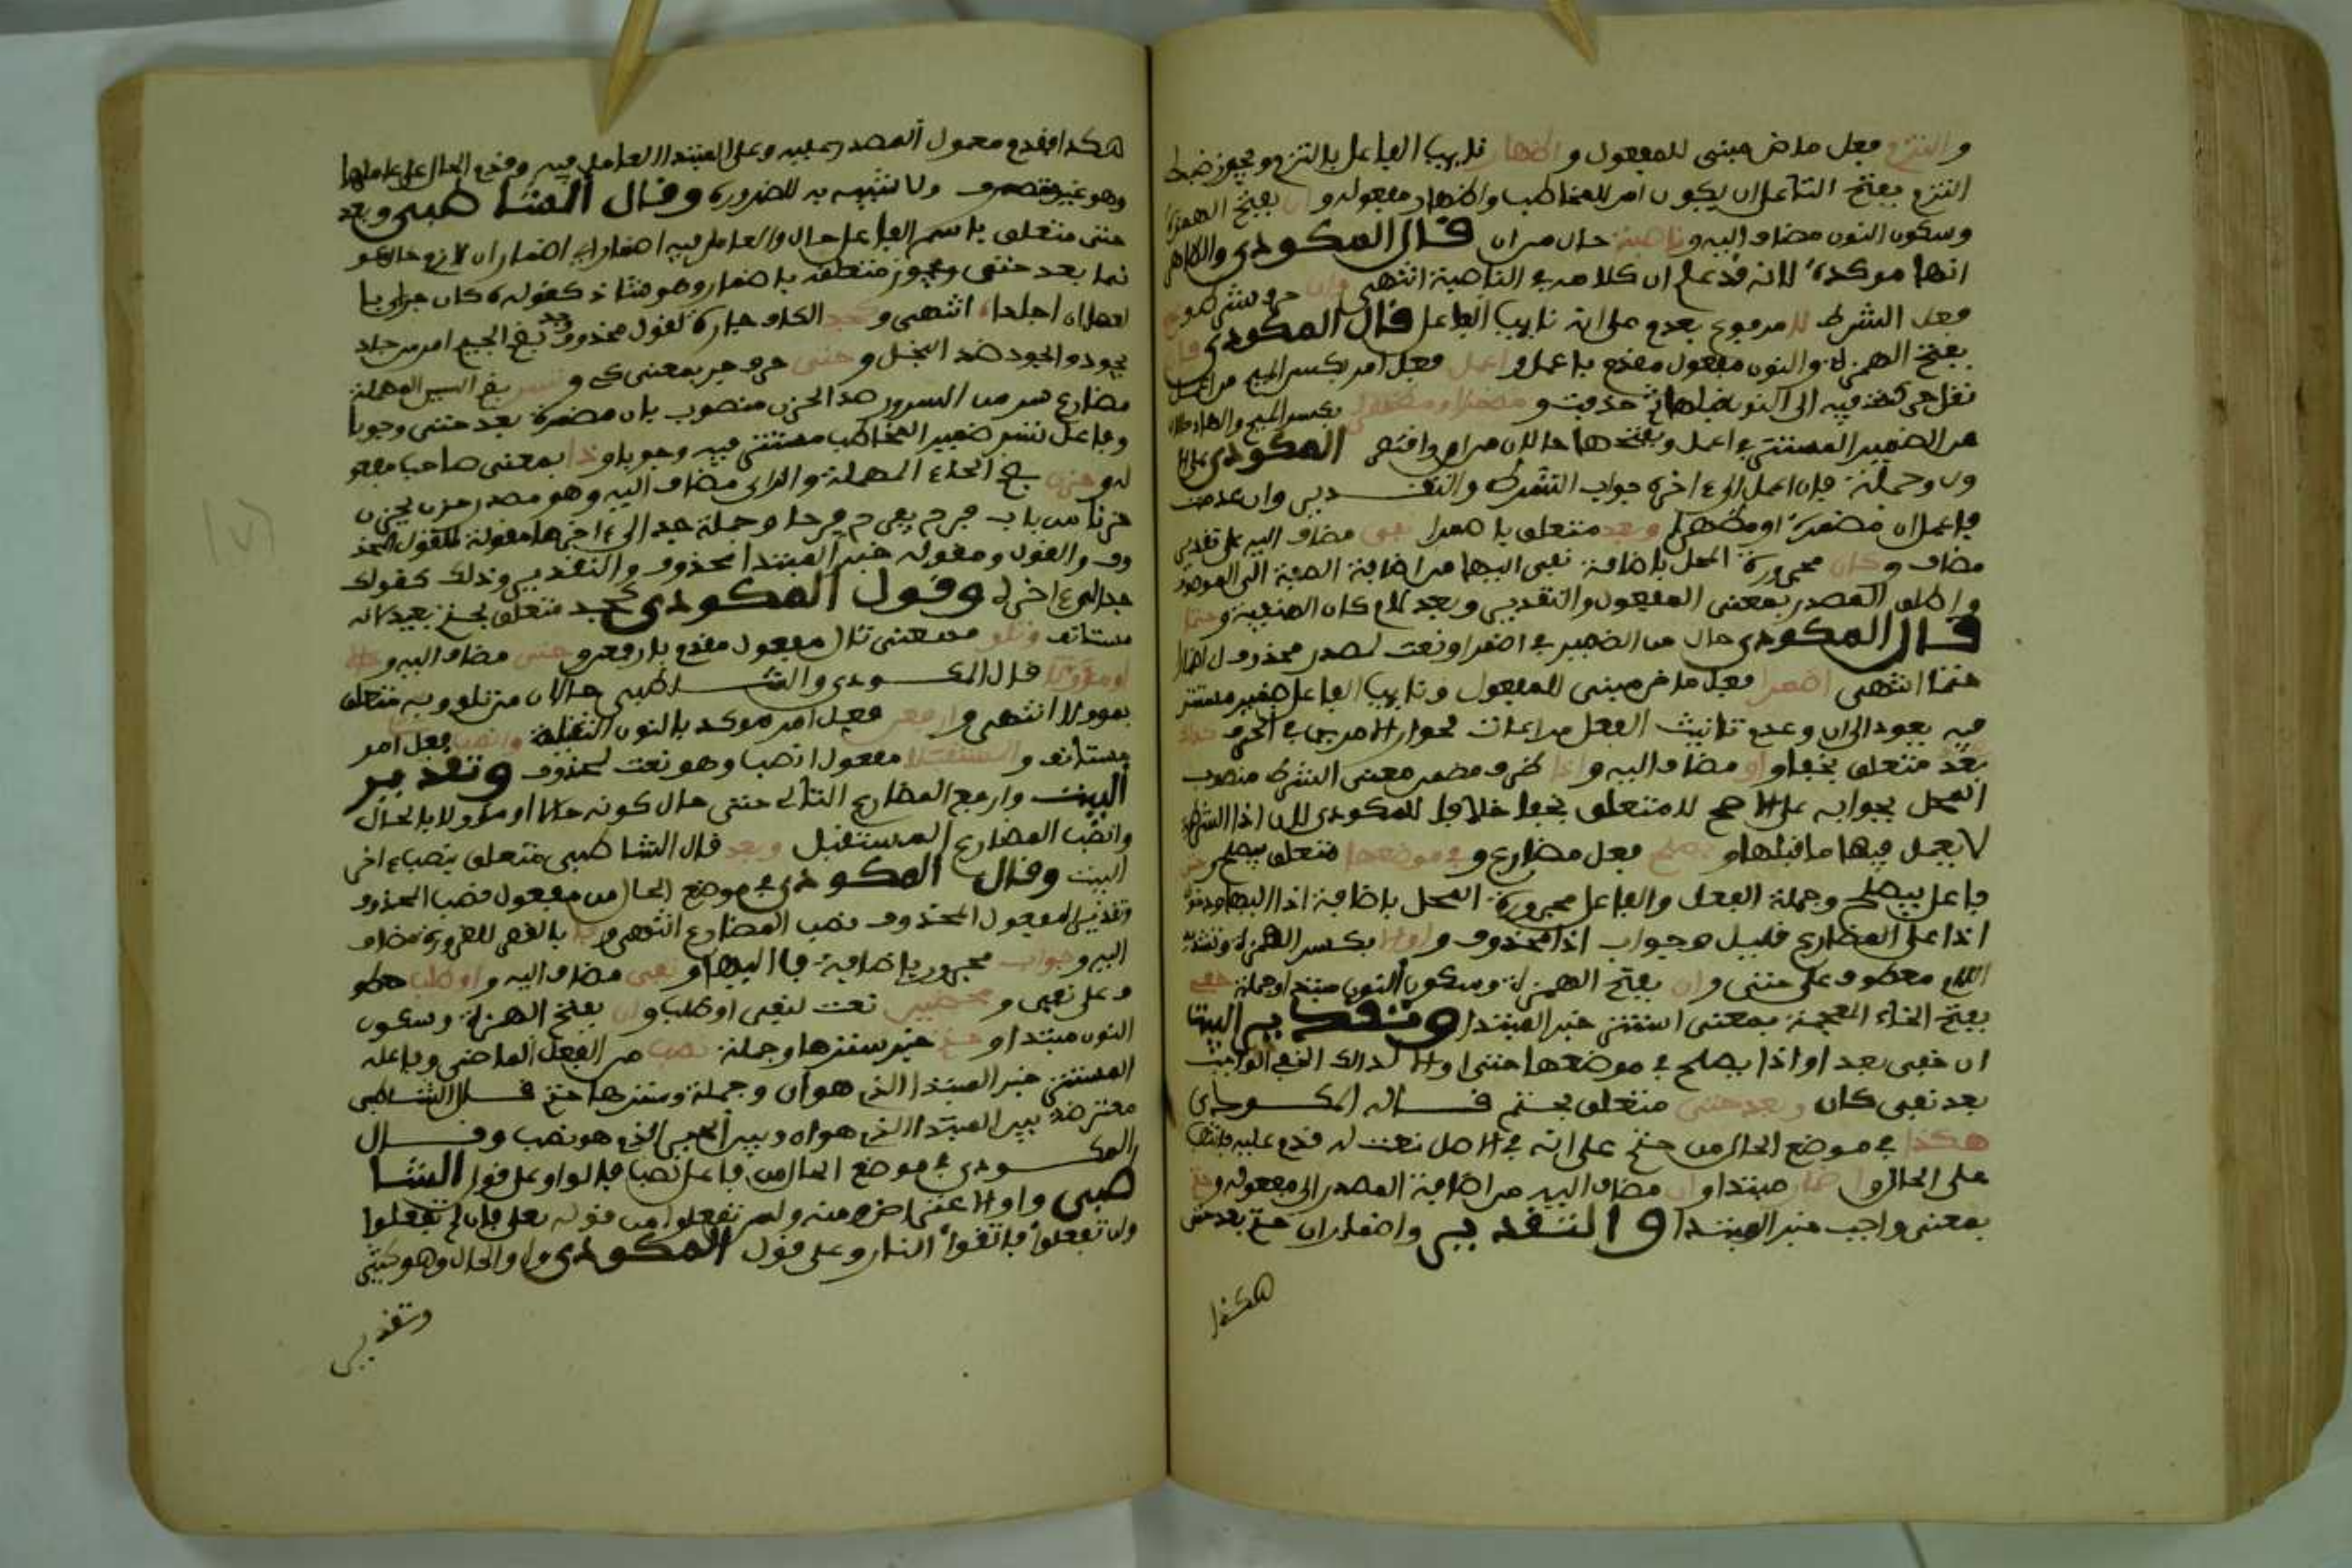 والتزم فعل ماض مبني للمفعول واظهار نايب الفاعل بالتزم ويجوز ضبط
التزم بفتح التا على ان يكون امر للمخاطب واظهار مفعوله وان بفتح الهمزة
وسكون النون مضاف اليه وناصبة حال من ان قال المكودي والظاهر
انها موكدة لانه قد علم ان كلامه في الناصبة انتهى وان حرف شرط
فعل الشرط لا مرفوع بعدم على انه نايب الفاعل قال المكودي فان
بفتح الهمزة والنون مفعول مقدم باعمل واعمل فعل امر بكسر الميم من اعمل
نقل حركة فيه الى النون قبلها ثم حذفت و مضمرا او مظهرا بكسر الميم والهاء حالان
من الضمير المستتر في اعمل وبفتحها حالان من ان واقتصر المكودي على
وجملة فان اعمل الى اخره جواب الشرط والتقدير وان عدمت
فاعمل ان مضمرة او مظهرا وبعد متعلق باضمرا نفي مضاف اليه على تقدير
مضاف وكان مجرورة المحل باضافة نفي اليها من اضافة الصفة الى الموصوف
واطلق المصدر بمعنى المفعول والتقدير وبعد كان المنفية وحتما
قال المكودي حال من الضمير في اضمرا ونعت لمصدر محذوف اي اضمارا
حتما انتهى اضمرا فعل ماض مبني للمفعول ونايب الفاعل ضمير مستتر
فيه يعود الى ان وعدم تانيث الفعل مراعات لجواز الامرين في الحرف كذاك
بعد متعلق بخفي او مضاف اليه واذا ظرف مضمن معنى الشرط منصوب
المحل بجوابه على الاصح لا متعلق بخفي خلافا للمكودي لان اذا الشرطية
لا يعمل فيها ما قبلها و يصلح فعل مضارع وفي موضعها متعلق بيصلح وحتى
فاعل بيصلح وجملة الفعل والفاعل مجرورة المحل باضافة اذا اليها ودخول
اذا على المضارع قليل وجواب اذا محذوف و اوالا بكسر الهمزة وتشديد
اللام معطوف على حتى وان بفتح الهمزة وسكون النون مبتدا وجملة خفي
بفتح الخاء المعجمة بمعنى استتر خبر المبتدا وتقدير البيت
ان خفي بعد او اذا يصلح في موضعها حتى او الا كذاك الخفي الواجب
بعد نفي كان وبعد حتى متعلق بحتم قاله المكودي
هكذا في موضع الحال من حتم على انه في الاصل نعت له قدم عليه فانتصب
على الحال واضمار مبتدا وان مضاف اليه من اضافة المصدر الى مفعوله وحتم
بمعنى واجب خبر المبتدا والتقدير واضمار ان حتم بعد حتى
هكذا
هكذا فقدم معمول المصدر عليه وعلى المبتدا العامل فيه وقدم الحال على عاملها
وهو غير متصرف ولا شبيه به للضرورة وقال الشاطبي وبعد
حتى متعلق باسم الفاعل حال والعامل فيه اضمار اي اضمار ان لازم حال
بعد حتى ويجوز متعلقه باضمار وهو شاذ كقوله كان جزاي با
لعصا ان اجلدا انتهى وكجد الكاف جارة لقول محذوف وجد بضم الجيم امر من جاد
يجود والجود ضد البخل وحتى حرف جر بمعنى كي وتسر بفتح السين المهملة
مضارع سر من السرور ضد الحزن منصوب بان مضمرة بعد حتى وجوبا
وفاعل تسر ضمير المخاطب مستتر فيه وجوبا وذا بمعنى صاحب مفعو
له وحزن بفتح الحاء المهملة والزاي مضاف اليه وهو مصدر حزن يحزن
حزنا من باب فرح يفرح فرحا وجملة جد الى اخرها مقولة للقول المحذ
وف والقول ومقوله خبر المبتدا محذوف والتقدير وذلك كقولك
جد الى اخره وقول المكودي كجد متعلق بحتم بعيد لانه
مستانف وتلو بمعنى تال مفعول مقدم بارفعن وحتى مضاف اليه وحالا
او مؤولا قال المكودي والشاطبي حالان من تلو وبه متعلق
بمؤولا انتهى وارفعن فعل امر موكد بالنون الثقيلة وانصب فعل امر
مستانف و المستقبلا مفعول انصب وهو نعت لمحذوف وتقدير
البيت وارفع المضارع التالي حتى حال كونه حالا او مؤولا بالحال
وانصب المضارع المستقبل وبعد قال الشاطبي متعلق بنصب اخر
البيت وقال المكودي في موضع الحال من مفعول نصب المحذوف
وتقدير المفعول المحذوف نصب المضارع انتهى وفا بالقصر للضرورة مضاف
اليه وجواب مجرور باضافة فا اليها ونفي مضاف اليه و او طلب معطو
ف على نفي و محضين نعت لنفي او طلب وان بفتح الهمزة وسكون
النون مبتدا و حتم خبر سترها وجملة نصب من الفعل الماضي وفاعله
المستتر خبر المبتدا الذي هو ان وجملة وسترها حتم قال الشاطبي
معترضة بين المبتدا الذي هو ان وبين الخبر الذي هو نصب وقال
المكودي في موضع الحال من فاعل نصب فالواو على قول الشا
طبي واو الاعتراض ومنه ولن تفعلوا من قوله تعلى فان لم تفعلوا
ولن تفعلوا فاتقوا النار وعلى قول المكودي واو الحال وهو
وتقدير